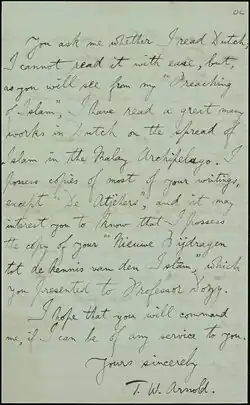 You ask me whether I read Dutch.
I cannot read it with ease, but,
as you will see from my "Preaching
of Islam", I have read a great many
works in Dutch on the spread of
Islam in the Malay Archipelago. I
possess copies of most of your writings,
except "De Atjehers", and it may
interest you to know that I possess
the copy of your "Nieuwe Bijdragen
tot de kennis van den Islam", which
you presented to Professor Dozy.
I hope that you will command
me, if I can be of any service to you.
Yours sincerely
T. W. Arnold.